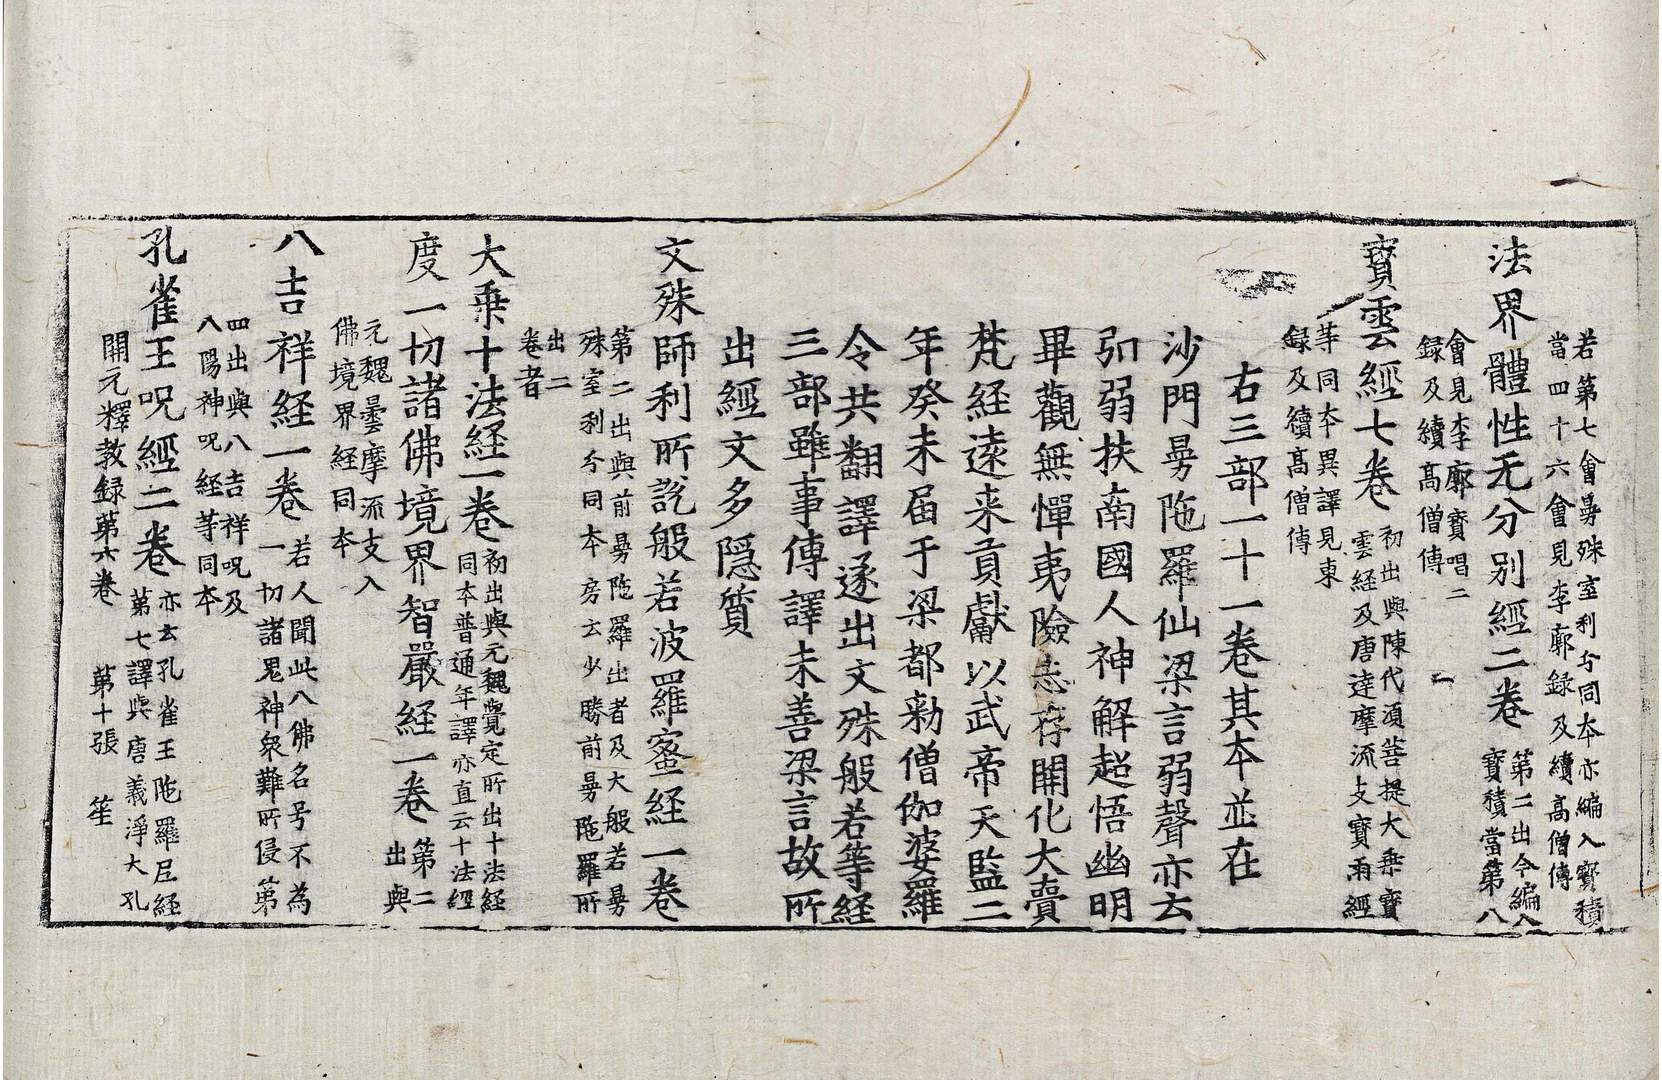 若第七會曼殊室利分同本亦編入寳積
當四十六會見李廓録及續高僧傳
法界體性无分別經二卷 第二出今編入
寳積當第八
會見李廓寳唱二
録及續高僧傳
寳雲經七卷 初出與陳代湏菩提大乗寳
雲經及唐達摩流支寳雨經
等同本異譯見東
録及續高僧傳
右三部一十一卷其本並在
沙門曼陁羅仙梁言弱聲亦云
弘弱扶南國人神解超悟幽明
畢觀無憚夷險志存開化大賷
梵経逺来貢獻以武帝天監二
年癸未届于梁都勑僧伽婆羅
令共翻譯遂出文殊般若等経
三部雖事傳譯未善梁言故所
出經文多隠質
文殊師利所說般若波羅蜜経一卷
第二出與前曼陁羅出者及大般若曼
殊室利分同本房云少勝前曼陁羅所
出二
卷者
大乗十法経一卷 初出與元魏覺定所出十法経
同本普通年譯亦直云十法經
度一切諸佛境界智嚴経一卷 第二
出與
元魏曇摩流支入
佛境界経同本
八吉祥経一卷 若人聞此八佛名号不為
一切諸鬼神衆難所侵第
四出與八吉祥呪及
八陽神呪経等同本
孔雀王呪經二卷 亦云孔雀王陁羅尼経
第七譯與唐義淨大孔
開元釋教録第六卷 第十張 笙